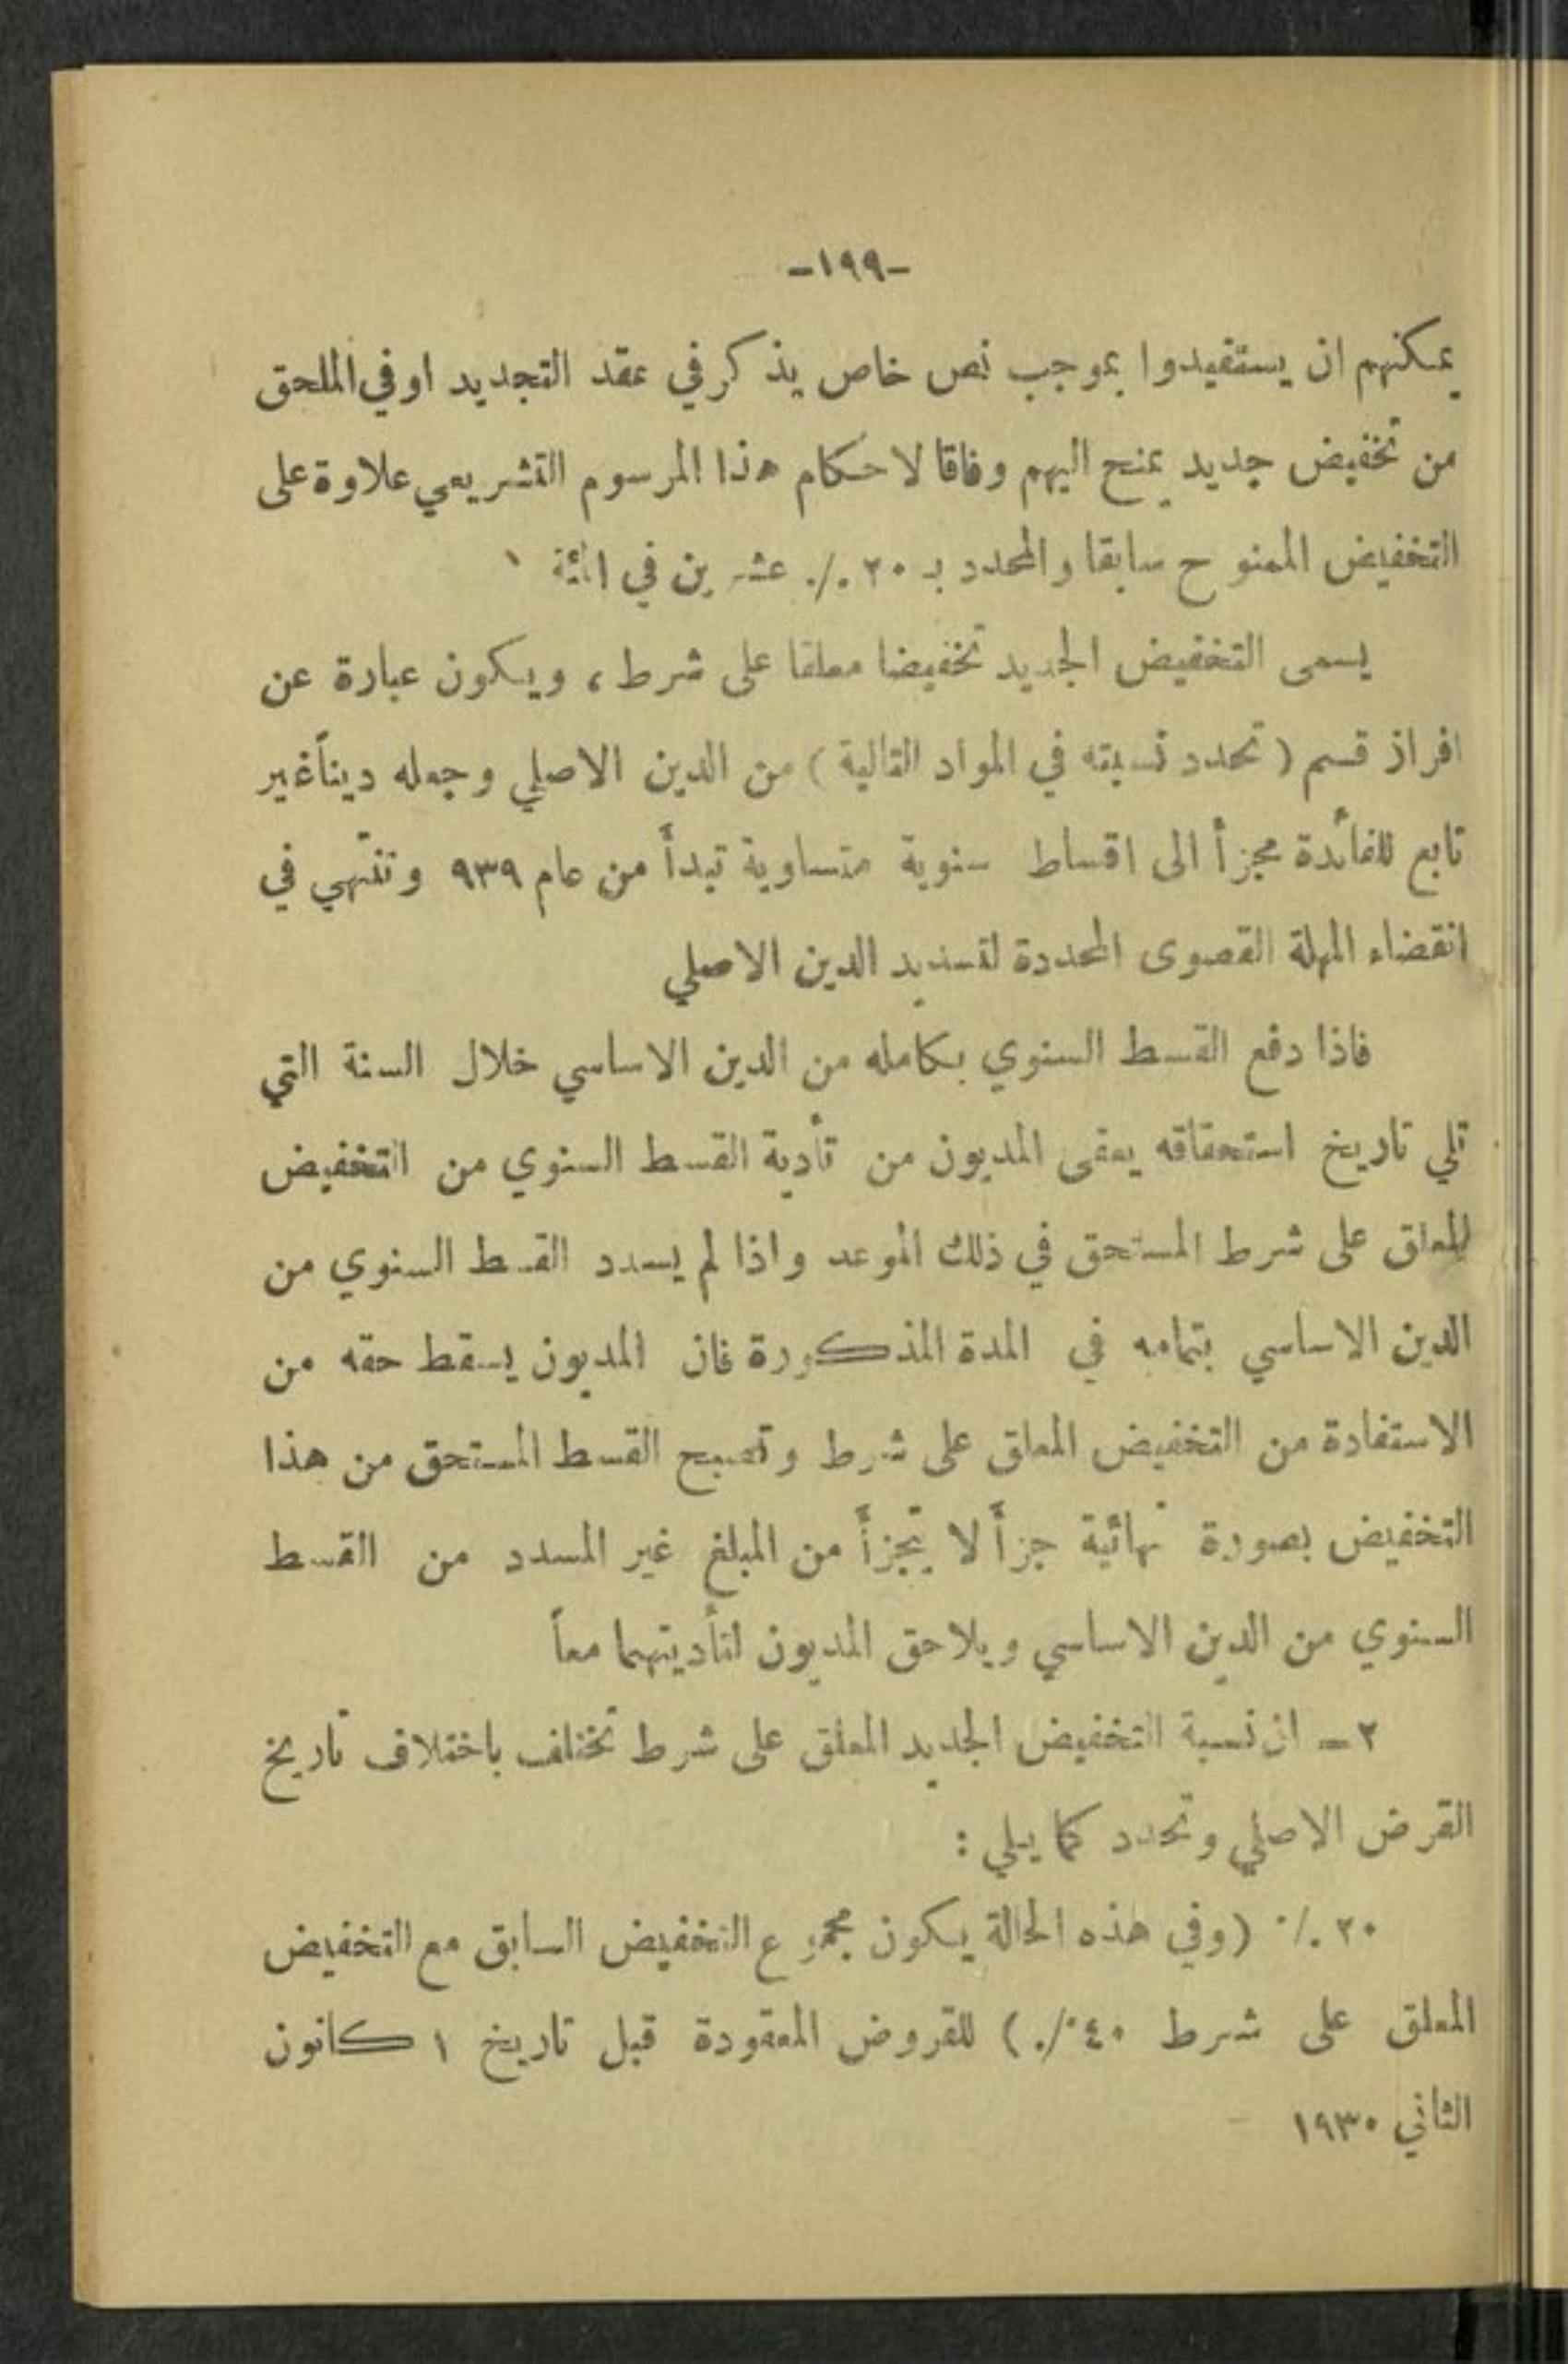 -١٩٩-
يمكنهم ان يستفيدوا بموجب نص خاص يذكر في عقد التجديد او في الملحق
من تخفيض جديد يمنح اليهم وفاقا لاحكام هذا المرسوم التشريعي علاوة على
التخفيض الممنوح سابقا والمحدد بـ ٢٠ ./. عشرين في المئة
يسمى التخفيض الجديد تخفيضا معلقا على شرط ، ويكون عبارة عن
افراز قسم ( تحدد نسبته في المواد التالية ) من الدين الاصلي وجعله ديناً غير
تابع للفائدة مجزأ الى اقساط سنوية متساوية تبدأ من عام ٩٣٩ وتنتهي في
انقضاء المهلة القصوى المحددة لتسديد الدين الاصلي
فاذا دفع القسط السنوي بكامله من الدين الاساسي خلال السنة التي
تلي تاريخ استحقاقه يعفى المديون من تأدية القسط السنوي من التخفيض
المعلق على شرط المستحق في ذلك الموعد واذا لم يسدد القسط السنوي من
الدين الاساسي بتمامه في المدة المذكورة فان المديون يسقط حقه من
الاستفادة من التخفيض المعلق على شرط وتصبح القسط المستحق من هذا
التخفيض بصورة نهائية جزأً لا يتجزأ من المبلغ غير المسدد من القسط
السنوي من الدين الاساسي ويلاحق المديون لتأديتهما معاً
٢ - ان نسبة التخفيض الجديد المعلق على شرط تختلف باختلاف تاريخ
القرض الاصلي وتحدد كما يلي :
٢٠ ./. (وفي هذه الحالة يكون مجموع التخفيض السابق مع التخفيض
المعلق على شرط ٤٠ ./. ) للقروض المعقودة قبل تاريخ ١ كانون
الثاني ١٩٣٠